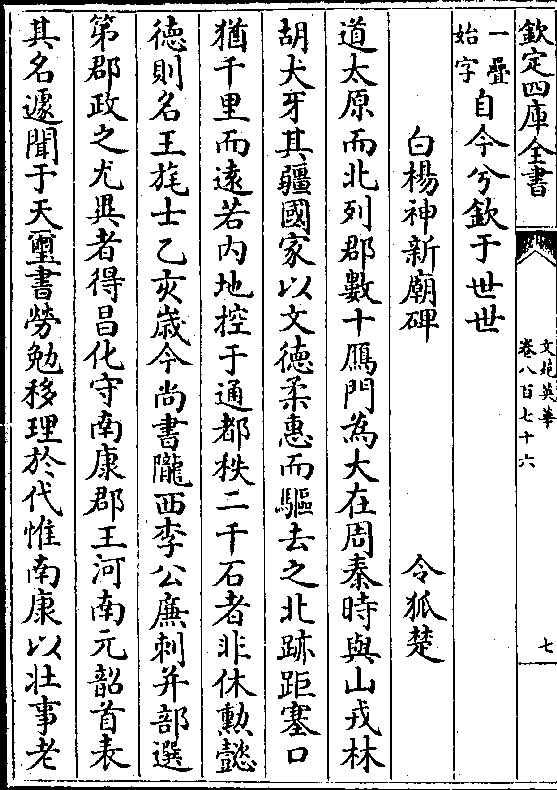 欽定四庫全書
文苑英華
卷八百七十六
七
一疊
始字
自今兮欽于世世
白楊神新廟碑
令狐楚
道太原而北列郡數十鴈門為大在周秦時與山戎林
胡犬牙其疆國家以文徳柔惠而驅去之北跡距塞口
猶千里而逺若内地控于通都秩二千石者非休勲懿
徳則名王旄士乙亥歳今尚書隴西李公廉刺并部選
第郡政之尤異者得昌化守南康郡王河南元韶首表
其名遽聞于天璽書勞勉移理於代惟南康以壯事老